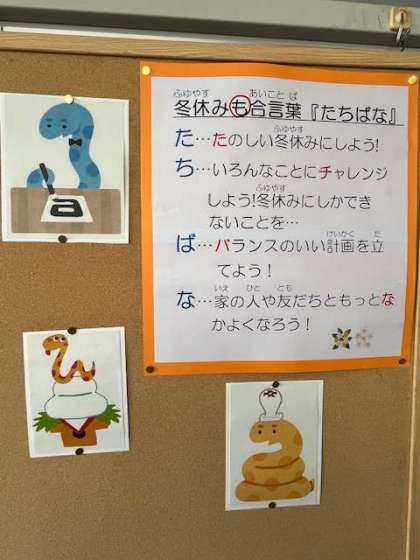 冬休みも合言葉『たちばな』
た…たのしい冬休みにしよう!
ち…いろんなことにチャレンジ
しよう!冬休みにしかでき
ないことを…
ば…バランスのいい計画を立
てよう!
な…家の人や友だちともっとな
かよくなろう!